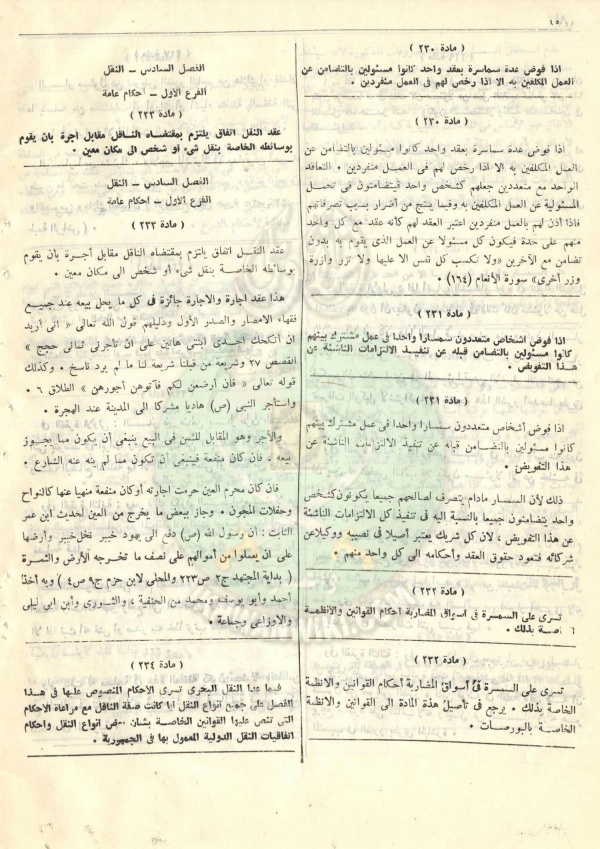 ١٥
( مادة ٢٣٠ )
اذا فوض عدة سماسرة بعقد واحد كانوا مسئولين بالتضامن عن
العمل المكلفين به الا اذا رخص لهم فى العمل منفردين .
( مادة ٢٣٠ )
اذا فوض عدة سماسرة بعقد واحد كانوا مسئولين بالتضامن عن
العمل المكلفين به الا اذا رخص لهم فى العمل منفردين . التعاقد
الواحد مع متعددين جعلهم كشخص واحد فيتضامنون فى تحمل
المسئولية عن العمل المكلفين به وفيما ينتج من أضرار بسبب تصرفاتهم
فاذا أذن لهم بالعمل منفردين اعتبر العقد لهم كأنه عقد مع كل واحد
منهم على حدة فيكون كل مسئولا عن العمل الذى يقوم به بدون
تضامن مع الآخرين «ولا تكسب كل نفس الا عليها ولا تزر وازرة
وزر أخرى» سورة الأنعام (١٦٤) .
( مادة ٢٣١ )
اذا فوض اشخاص متعددون سمسارا واحدا فى عمل مشترك بينهم
كانوا مسئولين بالتضامن قبله عن تنفيذ الالتزامات الناشئة عن
هذا التفويض .
( مادة ٢٣١ )
اذا فوض أشخاص متعددون سمسارا واحدا فى عمل مشترك بينهم
كانوا مسئولين بالتضامن قبله عن تنفيذ الالتزامات الناشئة عن
هذا التفويض .
ذلك لأن السمسار مادام يتصرف لصالحهم جميعا يكونون كشخص
واحد يتضامنون جميعا بالنسبة اليه فى تنفيذ كل الالتزامات الناشئة
عن هذا التفويض ، لان كل شريك يعتبر أصيلا فى نصيبه ووكيلا عن
شركائه فتعود حقوق العقد وأحكامه الى كل واحد منهم .
( مادة ٢٣٢ )
تسرى على السمسرة فى اسواق المضاربة أحكام القوانين والانظمة
اصة بذلك .
( مادة ٢٣٢ )
تسرى على السمسرة فى أسواق المضاربة أحكام القوانين والانظمة
الخاصة بذلك . يرجع فى تأصيل هذة المادة الى القوانين والانظمة
الخاصة بالبورصات .
الفصل السادس – النقل
الفرع الأول – أحكام عامة
( مادة ٢٣٣ )
عقد النقل اتفاق يلتزم بمقتضاه الناقل مقابل أجرة بان يقوم
بوسائطه الخاصة بنقل شىء أو شخص الى مكان معين .
الفصل السادس – النقل
الفرع الأول – احكام عامة
( مادة ٢٣٣ )
عقد النقل اتفاق يلتزم بمقتضاه الناقل مقابل أجرة بان يقوم
بوسائطه الخاصة بنقل شىء أو شخص الى مكان معين .
هذا عقد اجارة والاجارة جائزة فى كل ما يحل بيعه عند جميع
فقهاء الامصار والصدر الأول ودليلهم قول الله تعالى « انى أريد
أن أنكحك احدى ابنتى هاتين على ان تأجرنى ثمانى حجج »
القصص ٢٧ وشريعة من قبلنا شريعة لنا ما لم يرد ناسخ . وكذلك
قوله تعالى « فان أرضعن لكم فآتوهن أجورهن » الطلاق ٦ .
واستأجر النبى (ص) هاديا مشركا الى المدينة عند الهجرة .
والأجر وهو المقابل للثمن فى البيع ينبغى ان يكون مما يجوز
بيعه ، فان كان منفعة فينبغى ان تكون مما لم ينه عنه الشارع .
فان كان محرم العين حرمت اجارته أو كان منفعة منهيا عنها كالنواح
وحفلات المجون . وجاز ببعض ما يخرج من العين لحديث ابن عمر
الثابت : ان رسول الله (ص) دفع الى يهود خيبر نخل خيبر وأرضها
على ان يعملوا من أموالهم على نصف ما تخرجه الأرض والثمرة
( بداية المجتهد ج٢ ص٢٢٣ والمحلى لابن حزم ج٩ ص٤ ) وبه أخذ
احمد وأبو يوسف ومحمد من الحنفية ، والثورى وأبن أبى ليلى
والأوزاعى وجماعة .
( مادة ٢٣٤ )
فيما عدا النقل البحرى تسرى الأحكام المنصوص عليها فى هذا
الفصل على جميع انواع النقل ايا كانت صفة الناقل مع مراعاة الاحكام
التى تنص عليها القوانين الخاصة بشان بعض انواع النقل واحكام
اتفاقيات النقل الدولية المعمول بها فى الجمهورية .